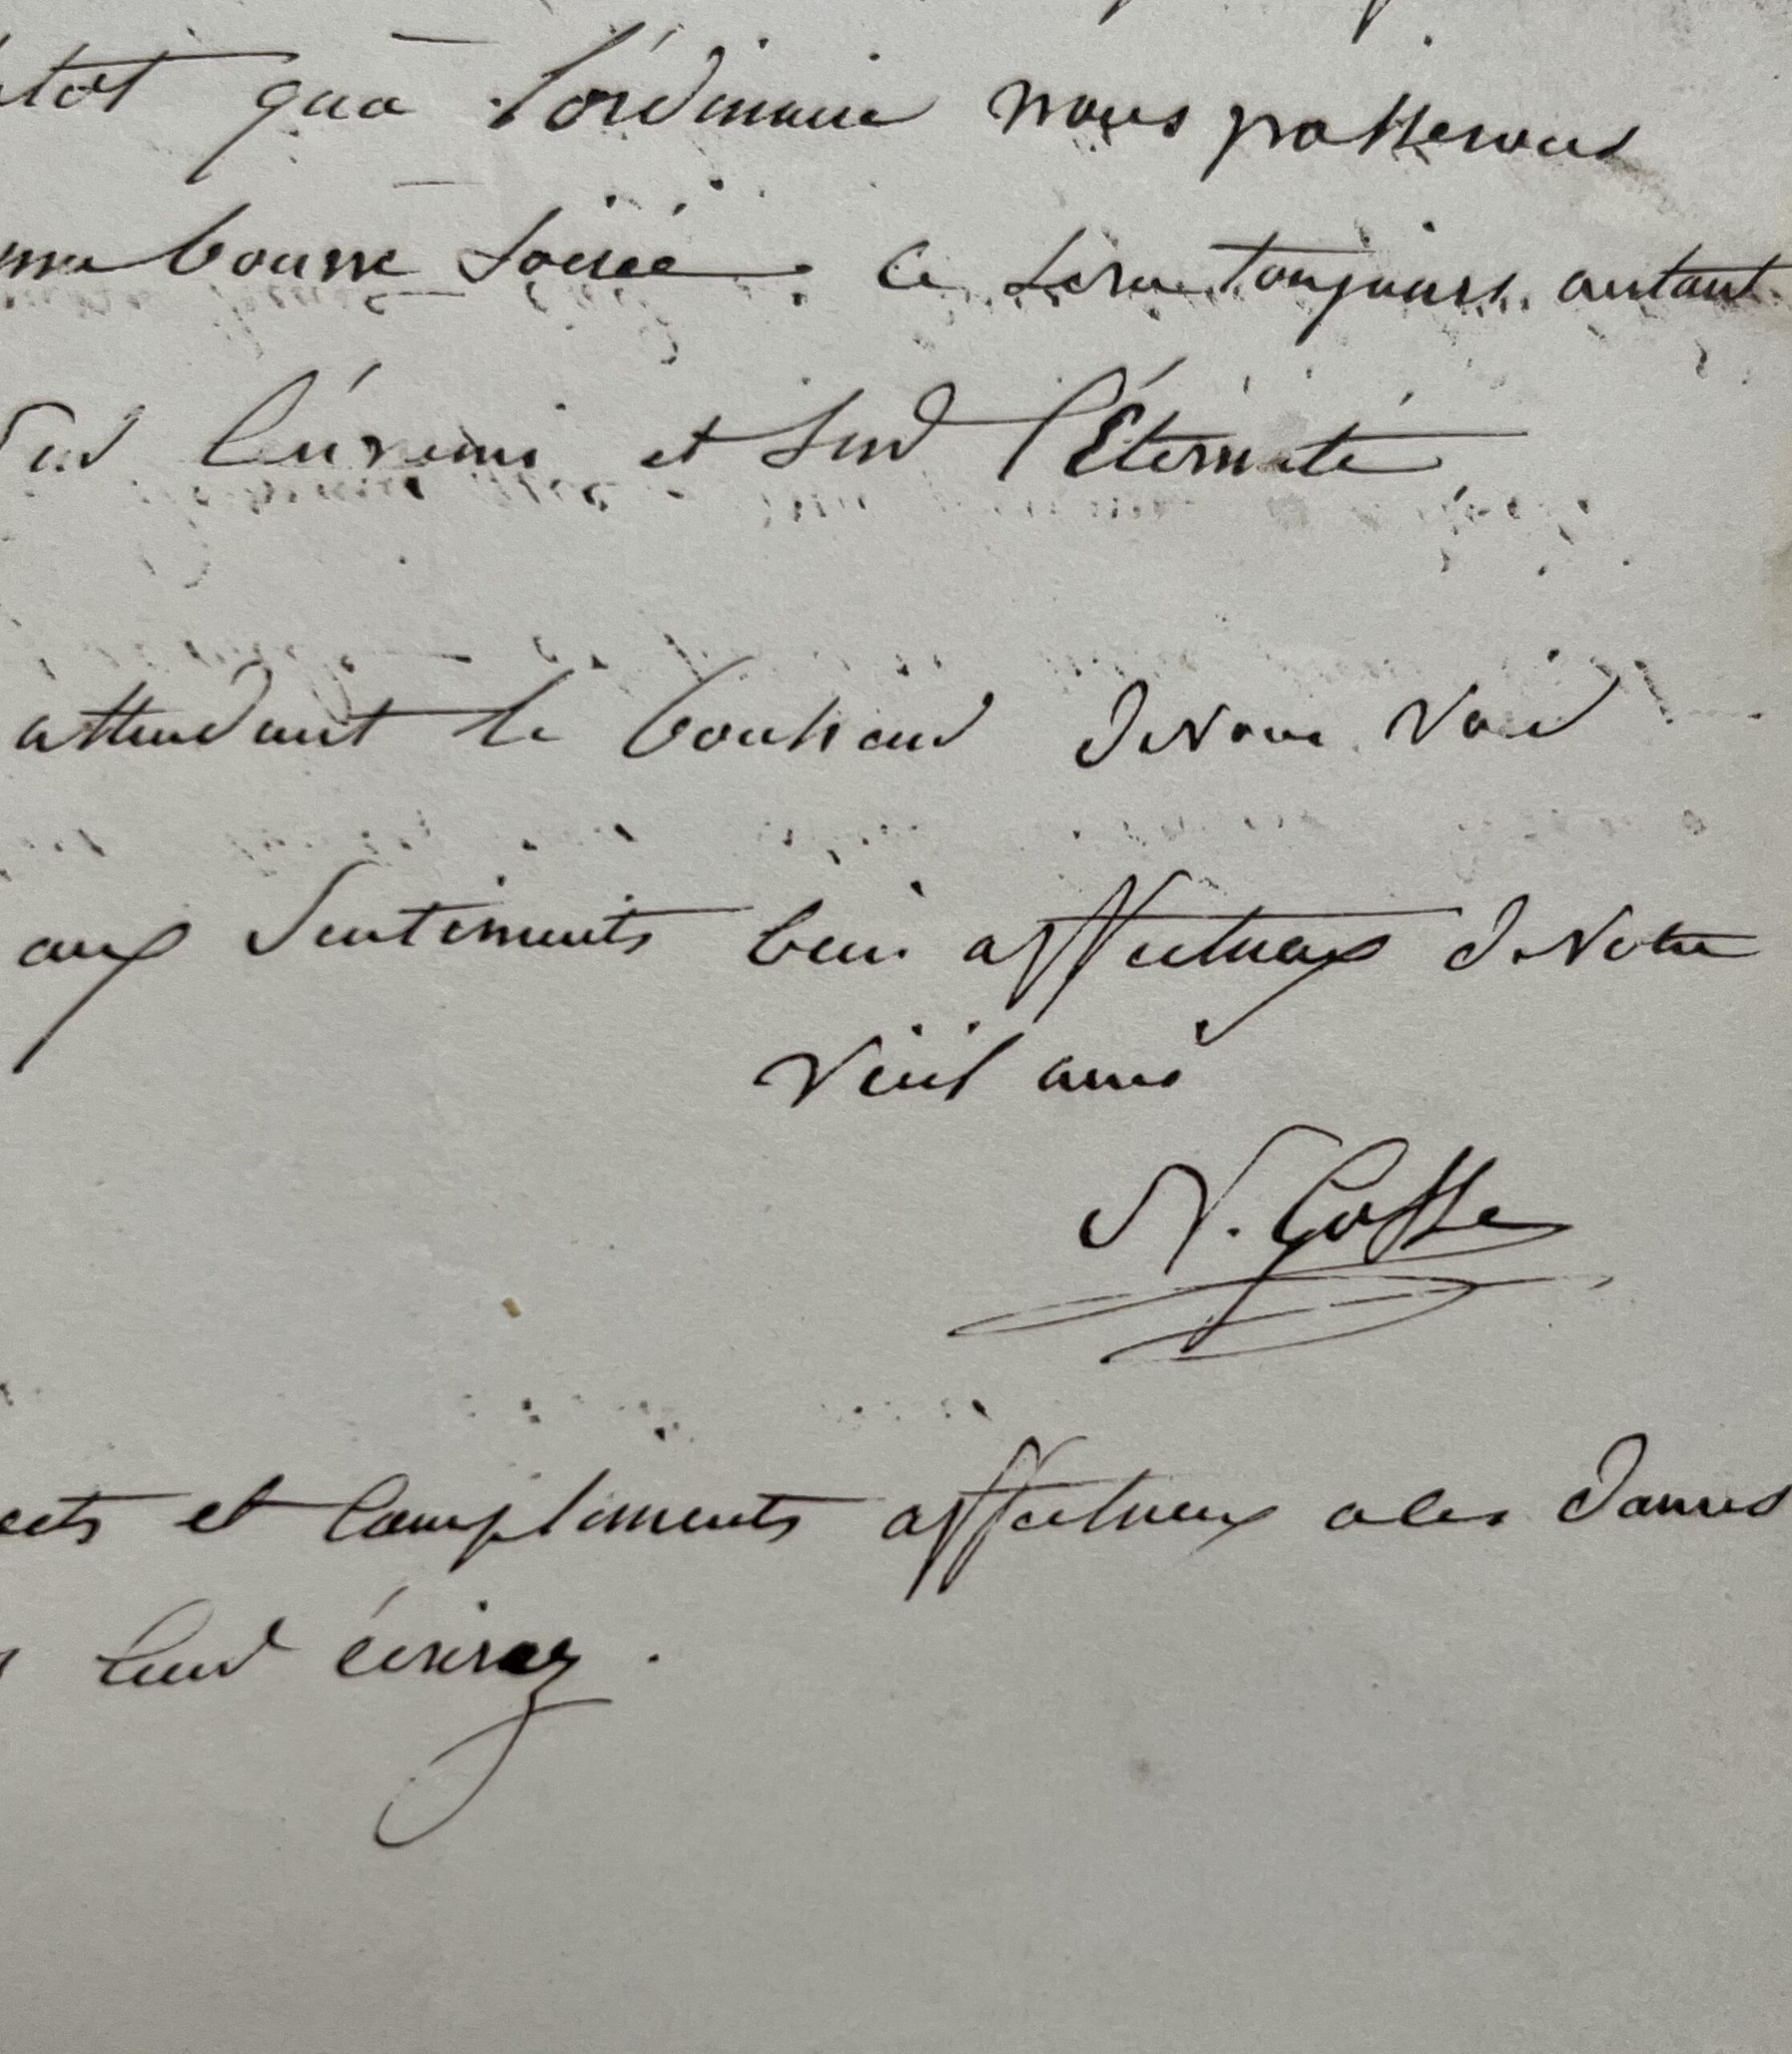 tôt qu'à l'ordinaire nous passerons
une bonne soirée. ce sera toujours autant
sur l'ennemi et sur l'Eternité
attendant le bonheur de vous voir
aux sentiments bien affectueux de votre
vieil ami
N. Gosse
et compliments affectueux a les Dames
leur écrirez.